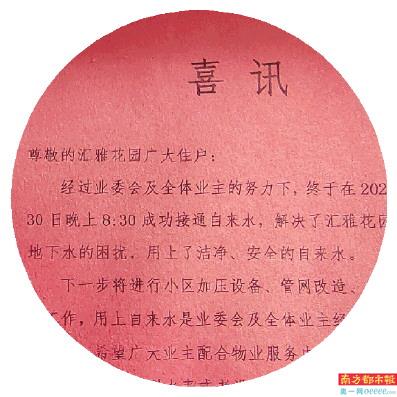 喜 讯
尊敬的汇雅花园广大住户：
经过业委会及全体业主的努力下，终于在 202
30 日晚上 8:30 成功接通自来水，解决了汇雅花园
地下水的困扰，用上了洁净、安全的自来水。
下一步将进行小区加压设备、管网改造、
工作，用上自来水是业委会及全体业主经
希望广大业主配合物业服务
南方都市报
奥一网 oeeee.com